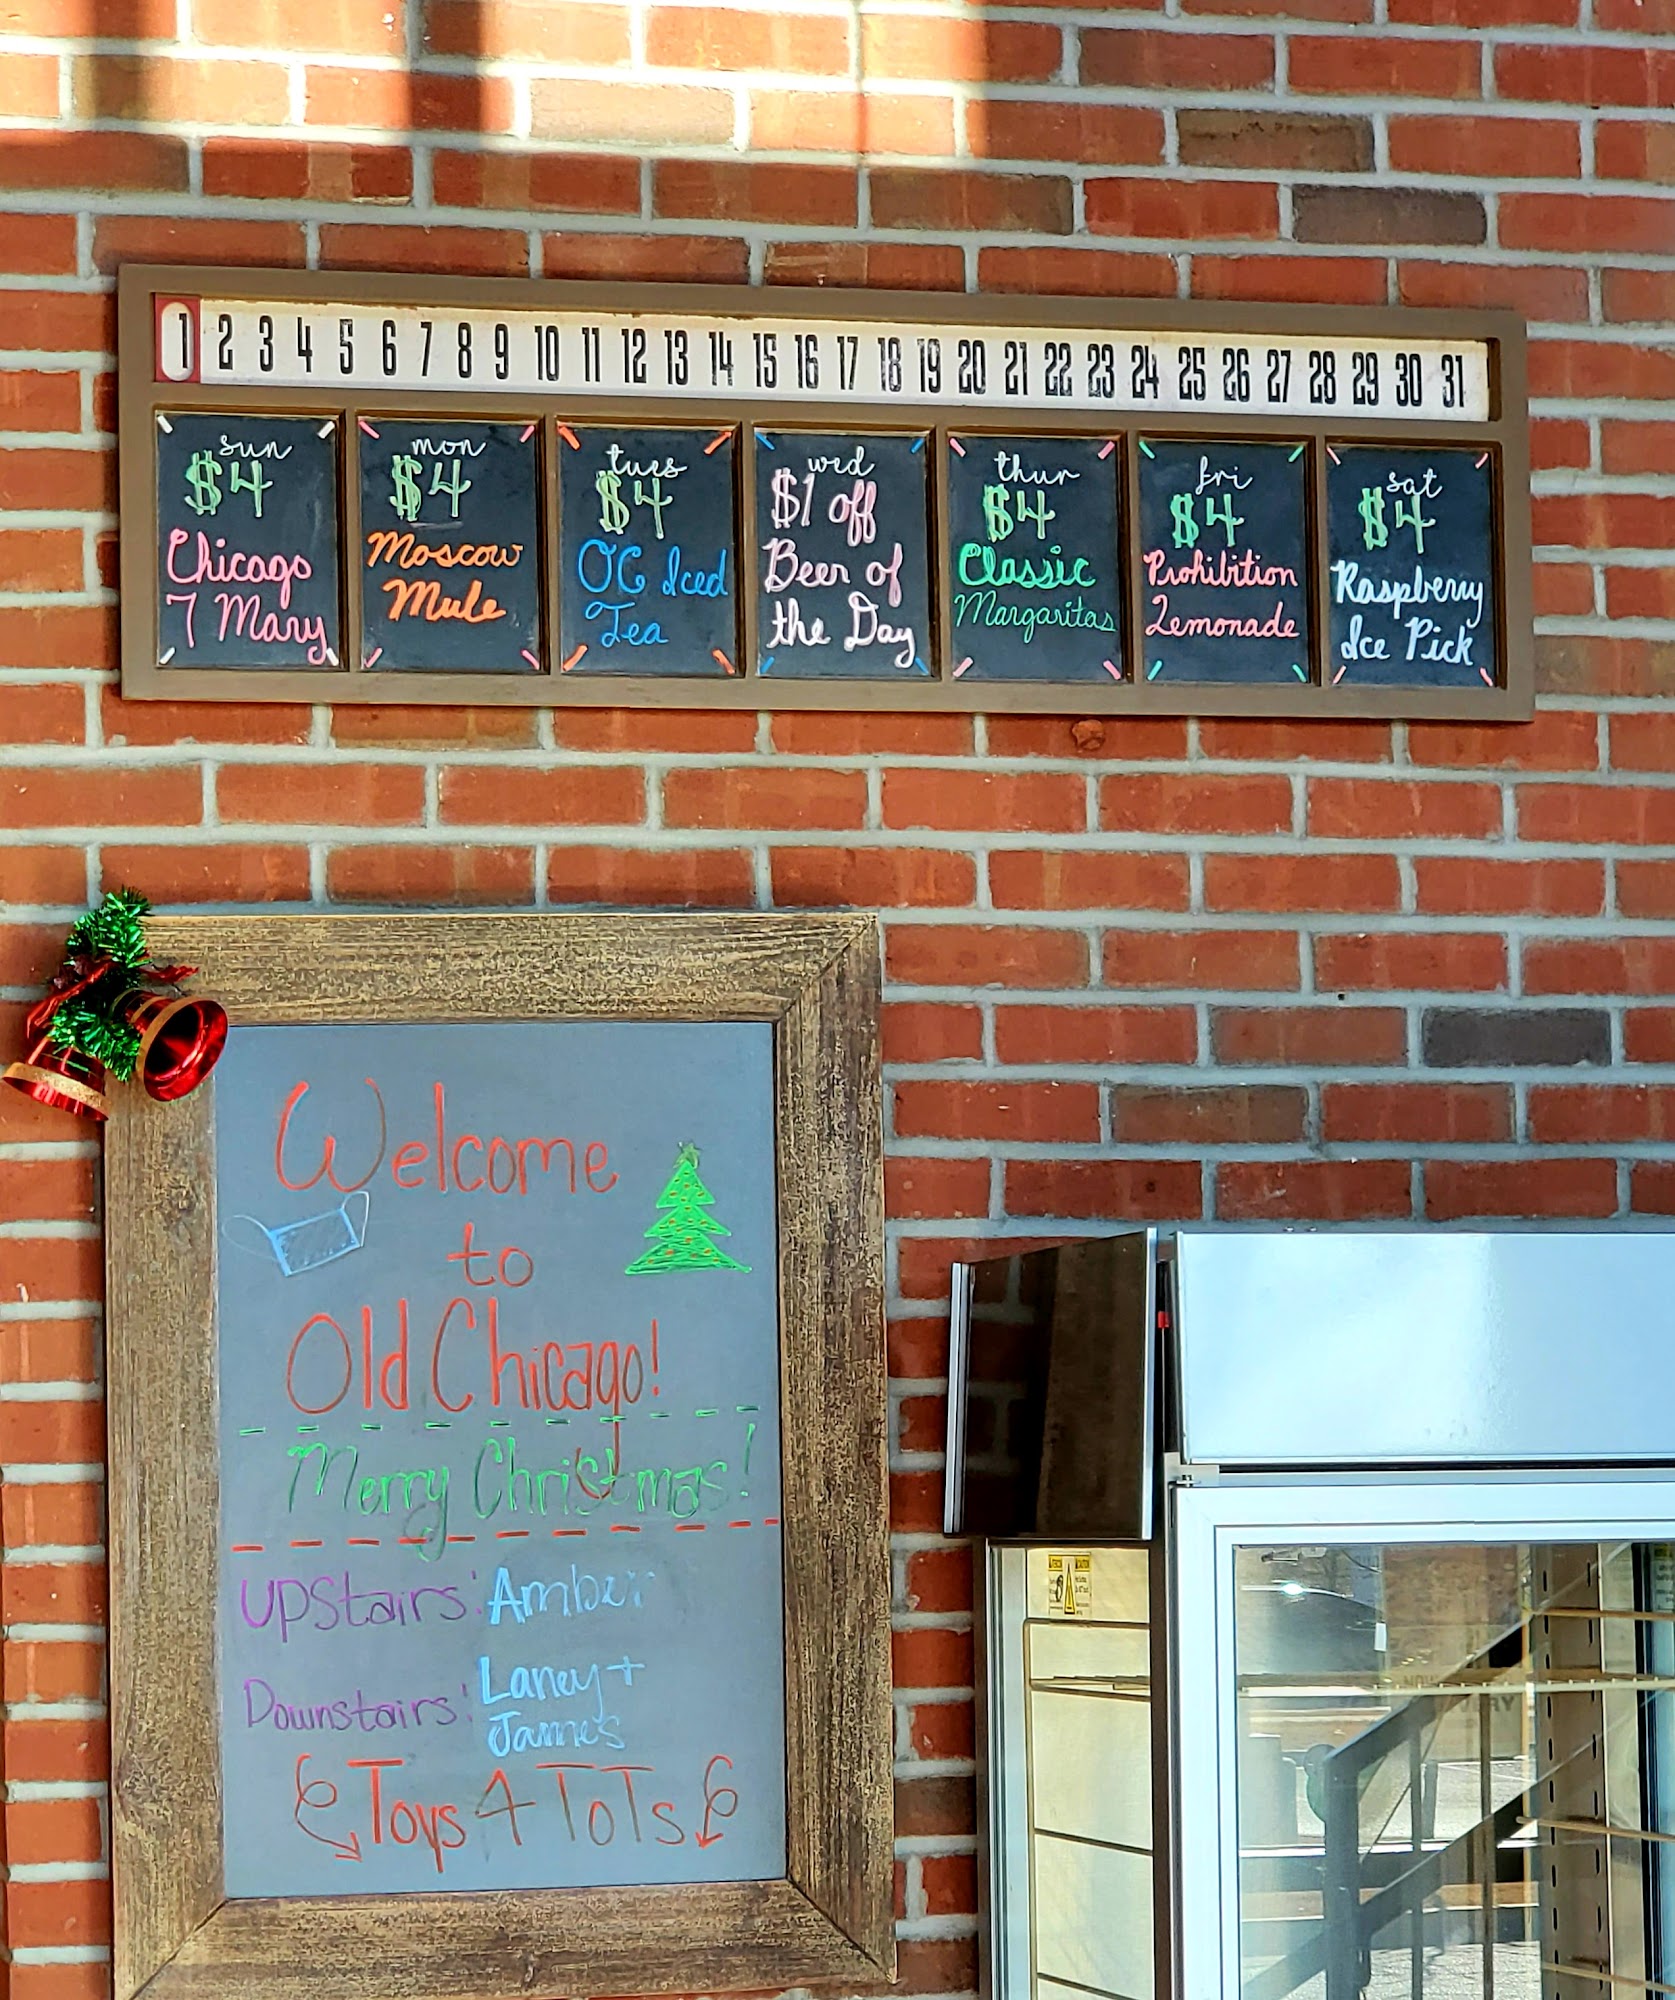 1 2 3 4 5 6 7 8 9 10 11 12 13 14 15 16 17 18 19 20 21 22 23 24 25 26 27 28 29 30 31
sun
$4
Chicago
7 Mary
mon
$4
Moscow
Mule
tues
$4
OC Iced
Tea
wed
$1 off
Beer of
the Day
thur
$4
Classic
Margaritas
fri
$4
Prohibition
Lemonade
sat
$4
Raspberry
Ice Pick
Welcome
to
Old Chicago!
Merry Christmas!
Upstairs:
Downstairs: Laney +
James
Toys 4 ToTs